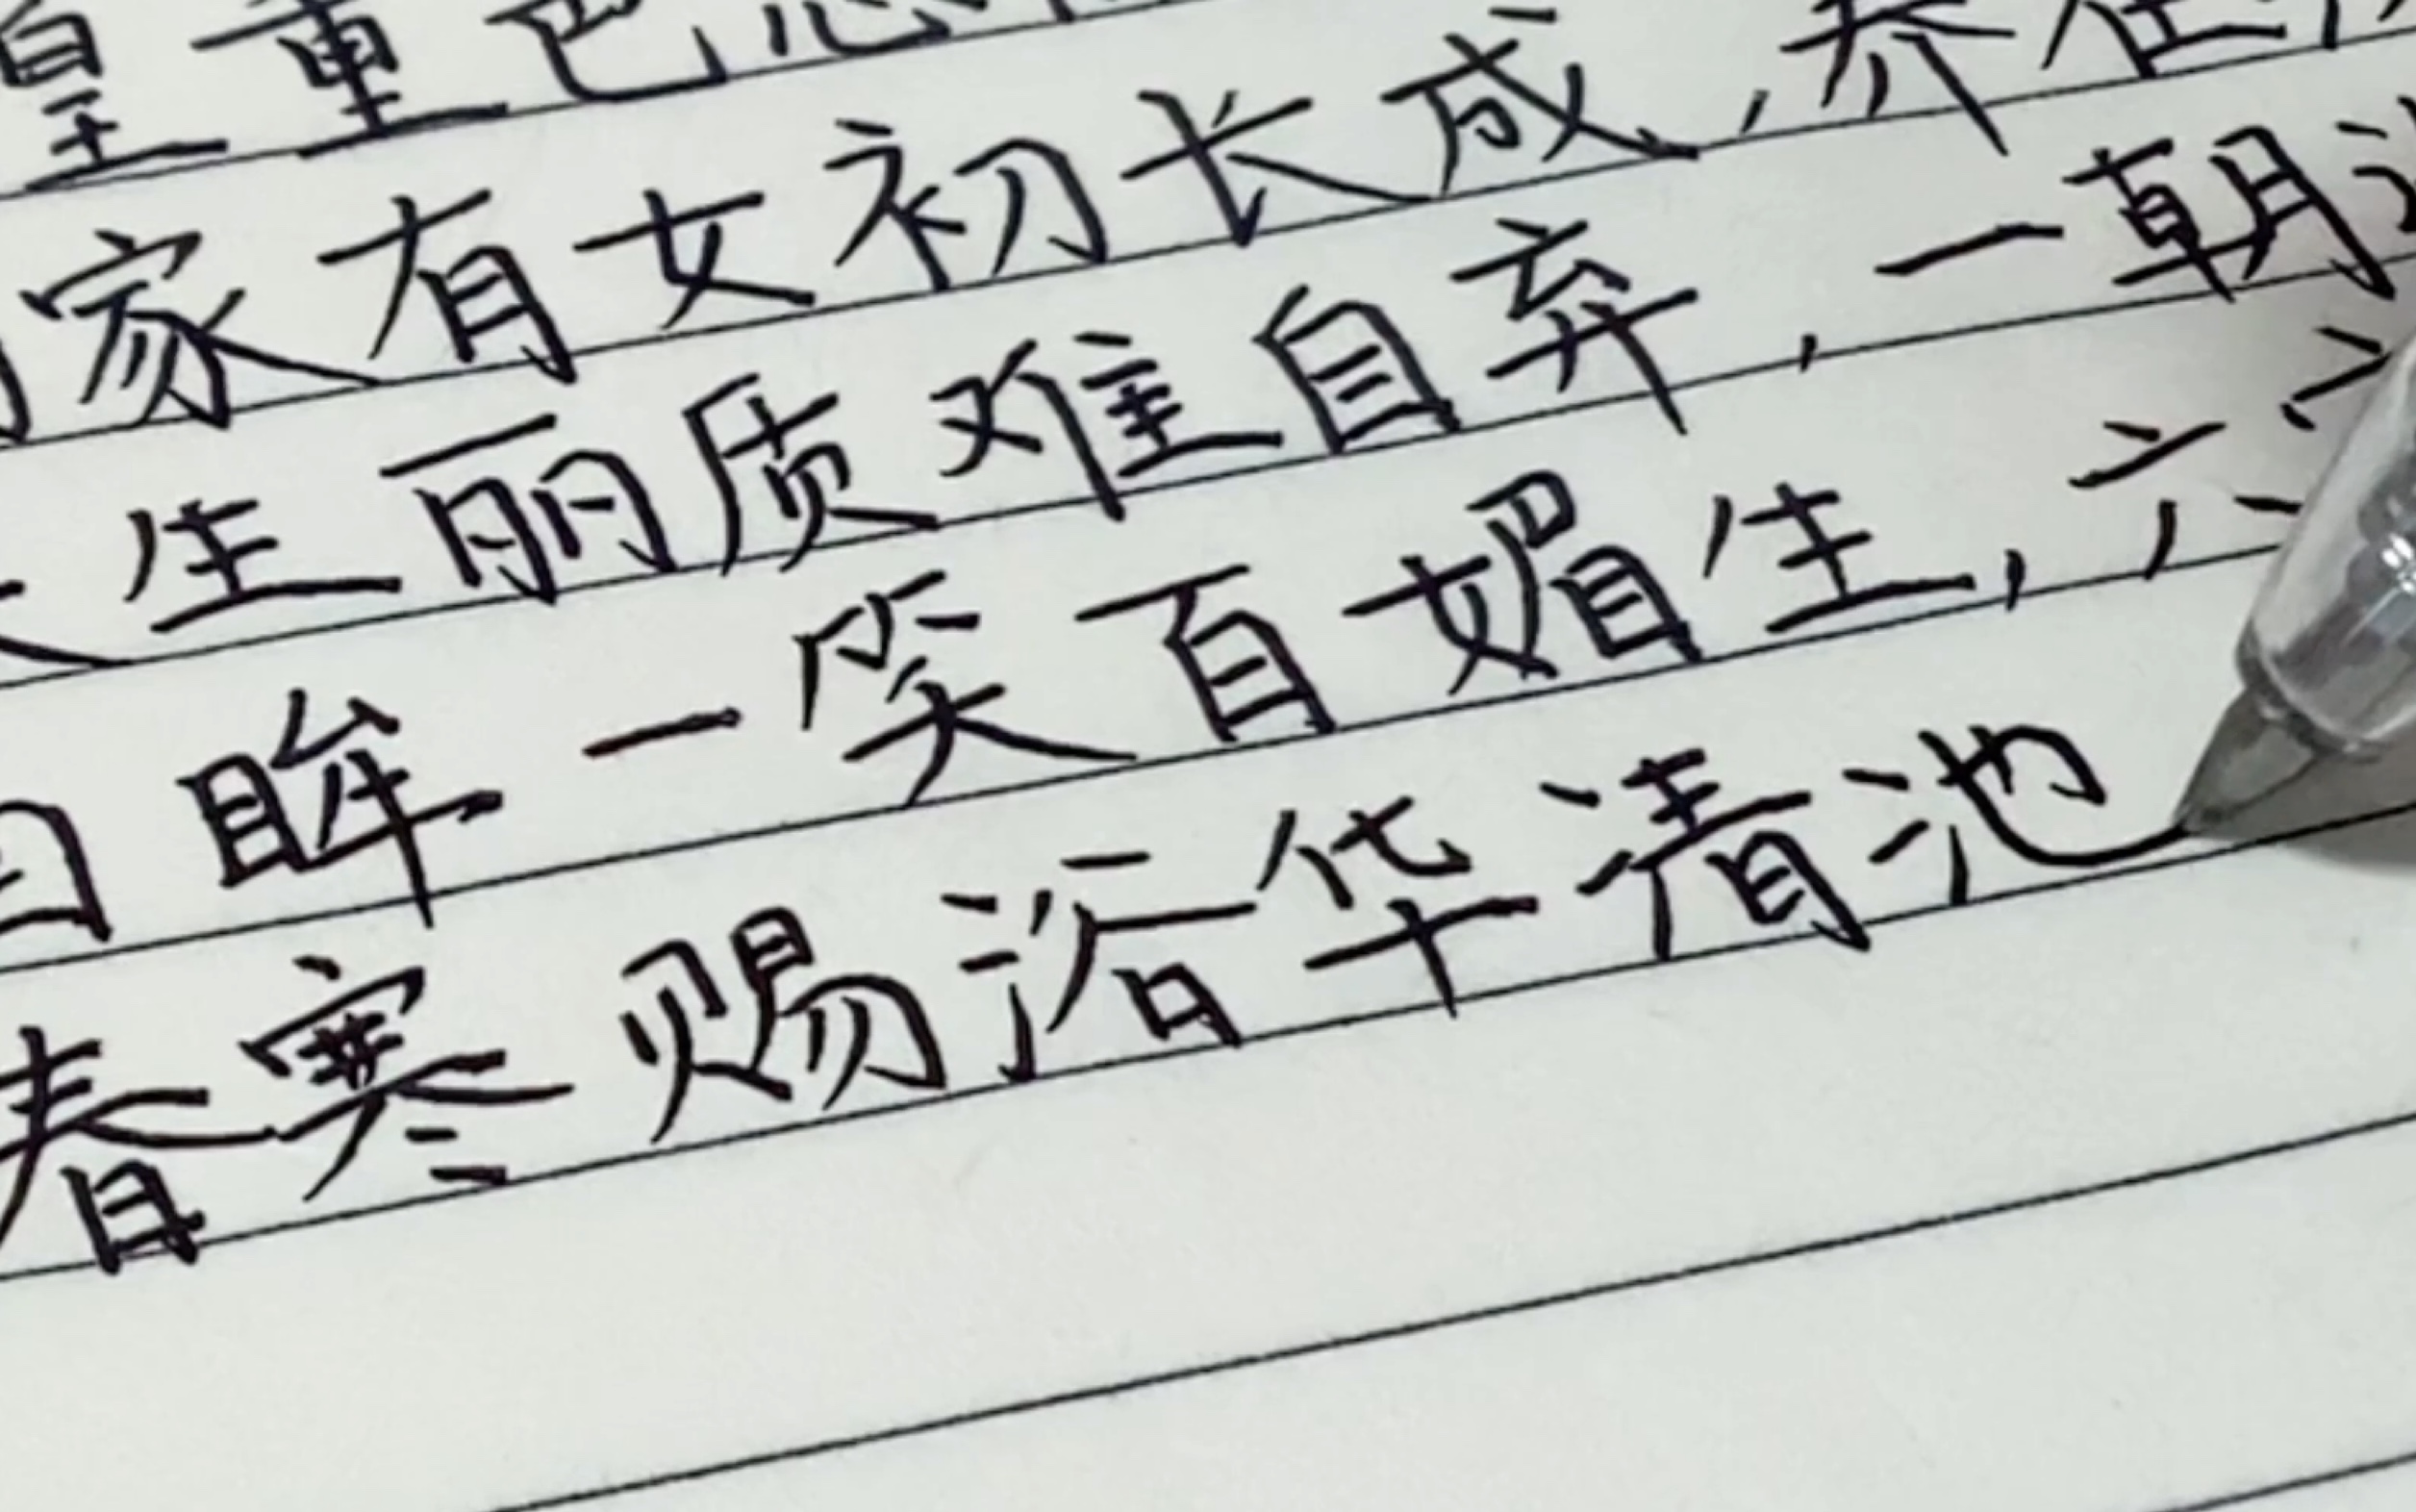 皇重色思
家有女初长成,养在
生丽质难自弃,一朝
眸一笑百媚生,六
春寒赐浴华清池